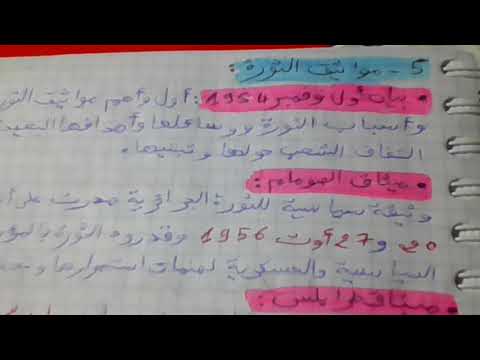 5- مواثيق الثورة:
• بيان أول نوفمبر 1954: أول وأهم مواثيق الثور
وأسباب الثورة ووسائلها وأهدافها
التفاف الشعب حولها وتبنيها.
• ميثاق الصومام:
وثيقة سياسية للثورة الجزائرية صدرت على
20 و27 أوت 1956 وقد زود الثورة
السياسية والعسكرية لضمان استمرارها
ميثاق طرابلس: